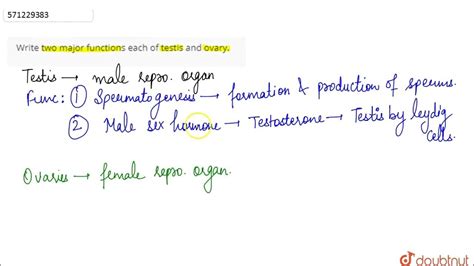 571229383
Write two major functions each of testis and ovary.
Testis → male repro. organ
Func: ① Spermatogenesis → formation & production of sperms.
② Male sex hormone → Testosterone → Testis by leydig cells.
Ovaries → female repro. organ.
doubtnut